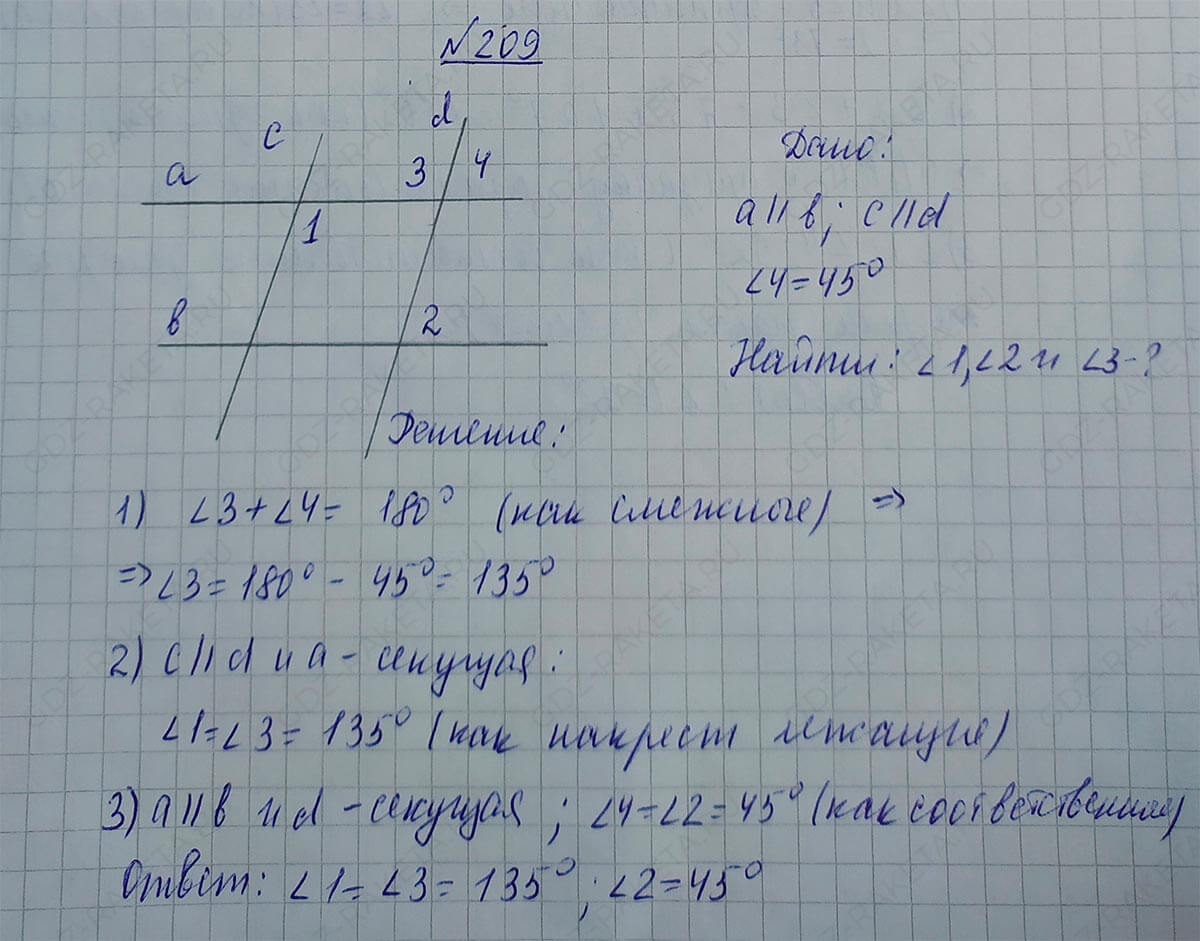 №209
c
d
a
3
4
1
в
2
Дано:
a||в; c||d
∠4=45°
Найти: ∠1,∠2 и ∠3-?
Решение:
1) ∠3+∠4= 180° (как смежные) =>
=> ∠3=180° - 45°= 135°
2) c||d и a - секущая:
∠1=∠3= 135° (как накрест лежащие)
3) a||в и d - секущая; ∠4=∠2=45° (как соответственные)
Ответ: ∠1=∠3=135°; ∠2=45°
GDZ-RAKETA.RU